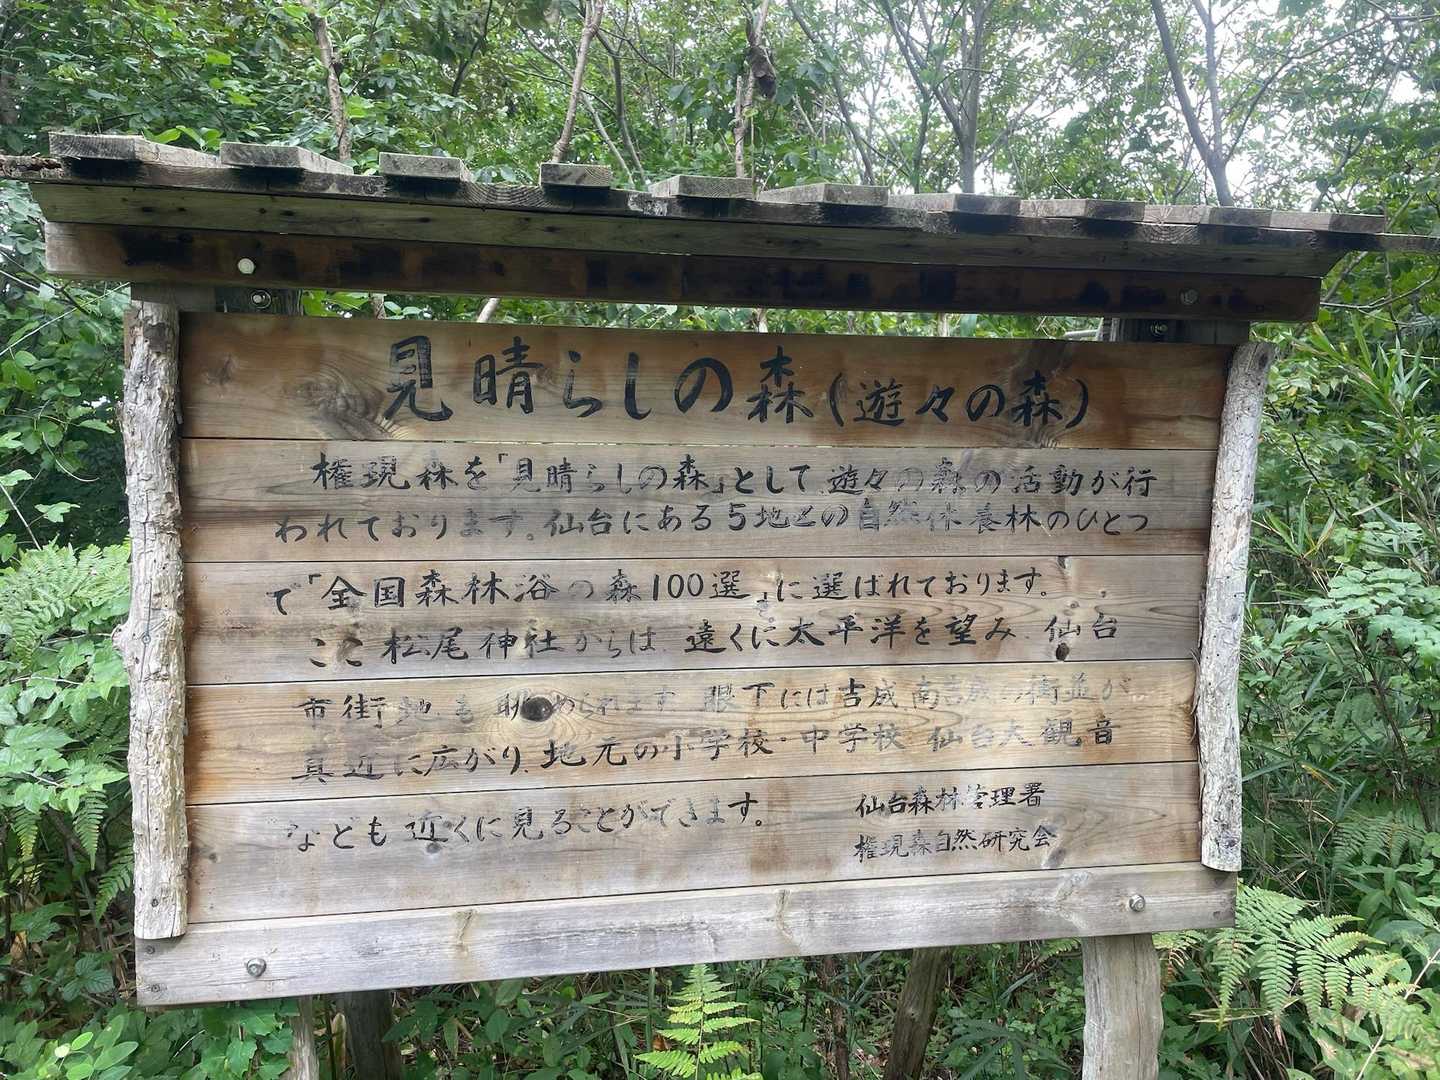 見晴らしの森(遊々の森)
権現森を「見晴らしの森」として、遊々の森の活動が行
われております。仙台にある5地との自然休養林のひとつ
で「全国森林浴の森100選」に選ばれております。
ここ松尾神社からは、遠くに太平洋を望み、仙台
市街地も眺められます。眼下には吉成、南吉成の街並が
真近に広がり、地元の小学校・中学校、仙台大観音
なども近くに見ることができます。
仙台森林管理署
権現森自然研究会